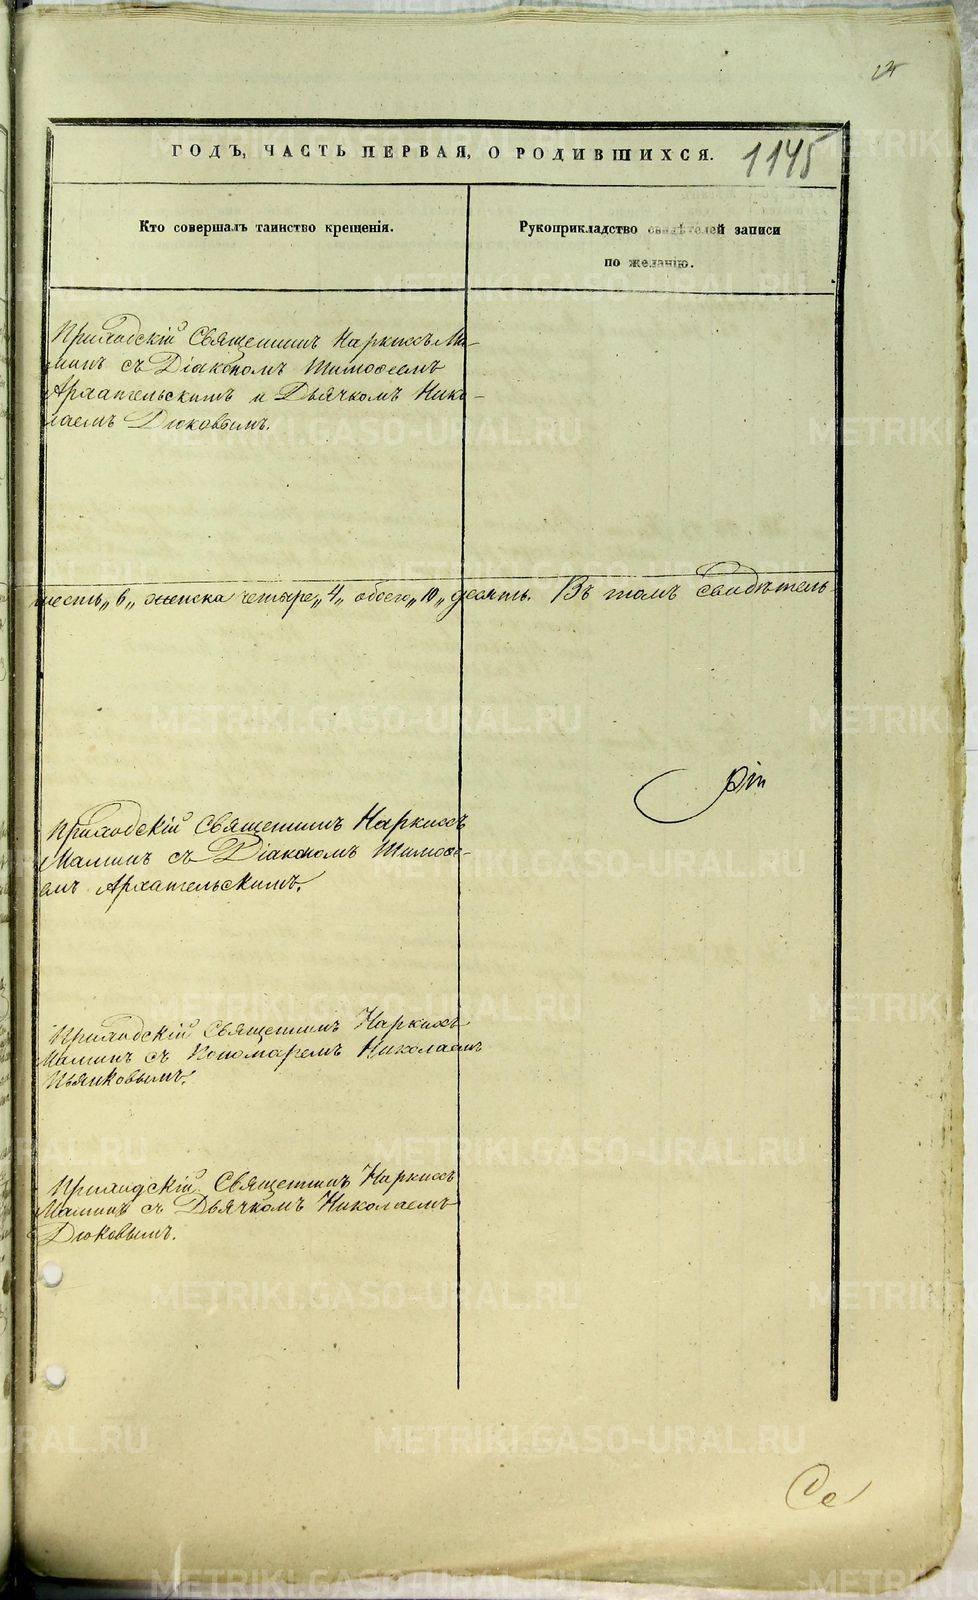 1145
ГОДЪ, ЧАСТЬ ПЕРВАЯ, О РОДИВШИХСЯ.
Кто совершалъ таинство крещенія.
Рукоприкладство свидѣтелей записи
по желанію.
Приходскій Священникъ Наркиссъ Ма-
минъ съ Діакономъ Тимоѳеемъ
Архангельскимъ и Дьячкомъ Нико-
лаемъ Дюковымъ.
шесть „6„ женска четыре „4„ обоего „10„ десять. Въ томъ свидѣтель-
Приходскій Священникъ Наркиссъ
Маминъ съ Діакономъ Тимоѳе-
емъ Архангельскимъ.
Приходскій Священникъ Наркиссъ
Маминъ съ Пономаремъ Николаемъ
Пьянковымъ.
Приходскій Священникъ Наркиссъ
Маминъ съ Дьячкомъ Николаемъ
Дюковымъ.
Се
METRIKI.GASO-URAL.RU